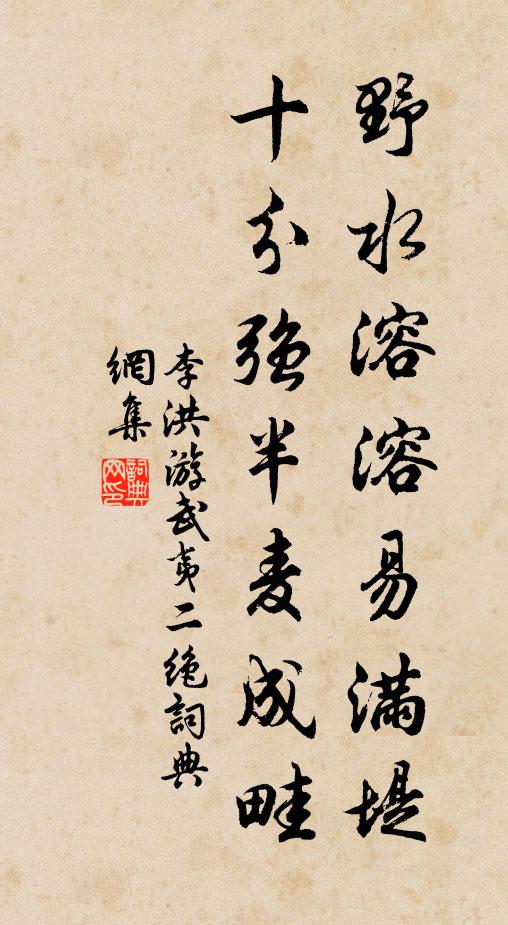 野水溶溶易满堤
十分强半麦成畦
李洪游武夷二绝詞典
網集
詞典网印